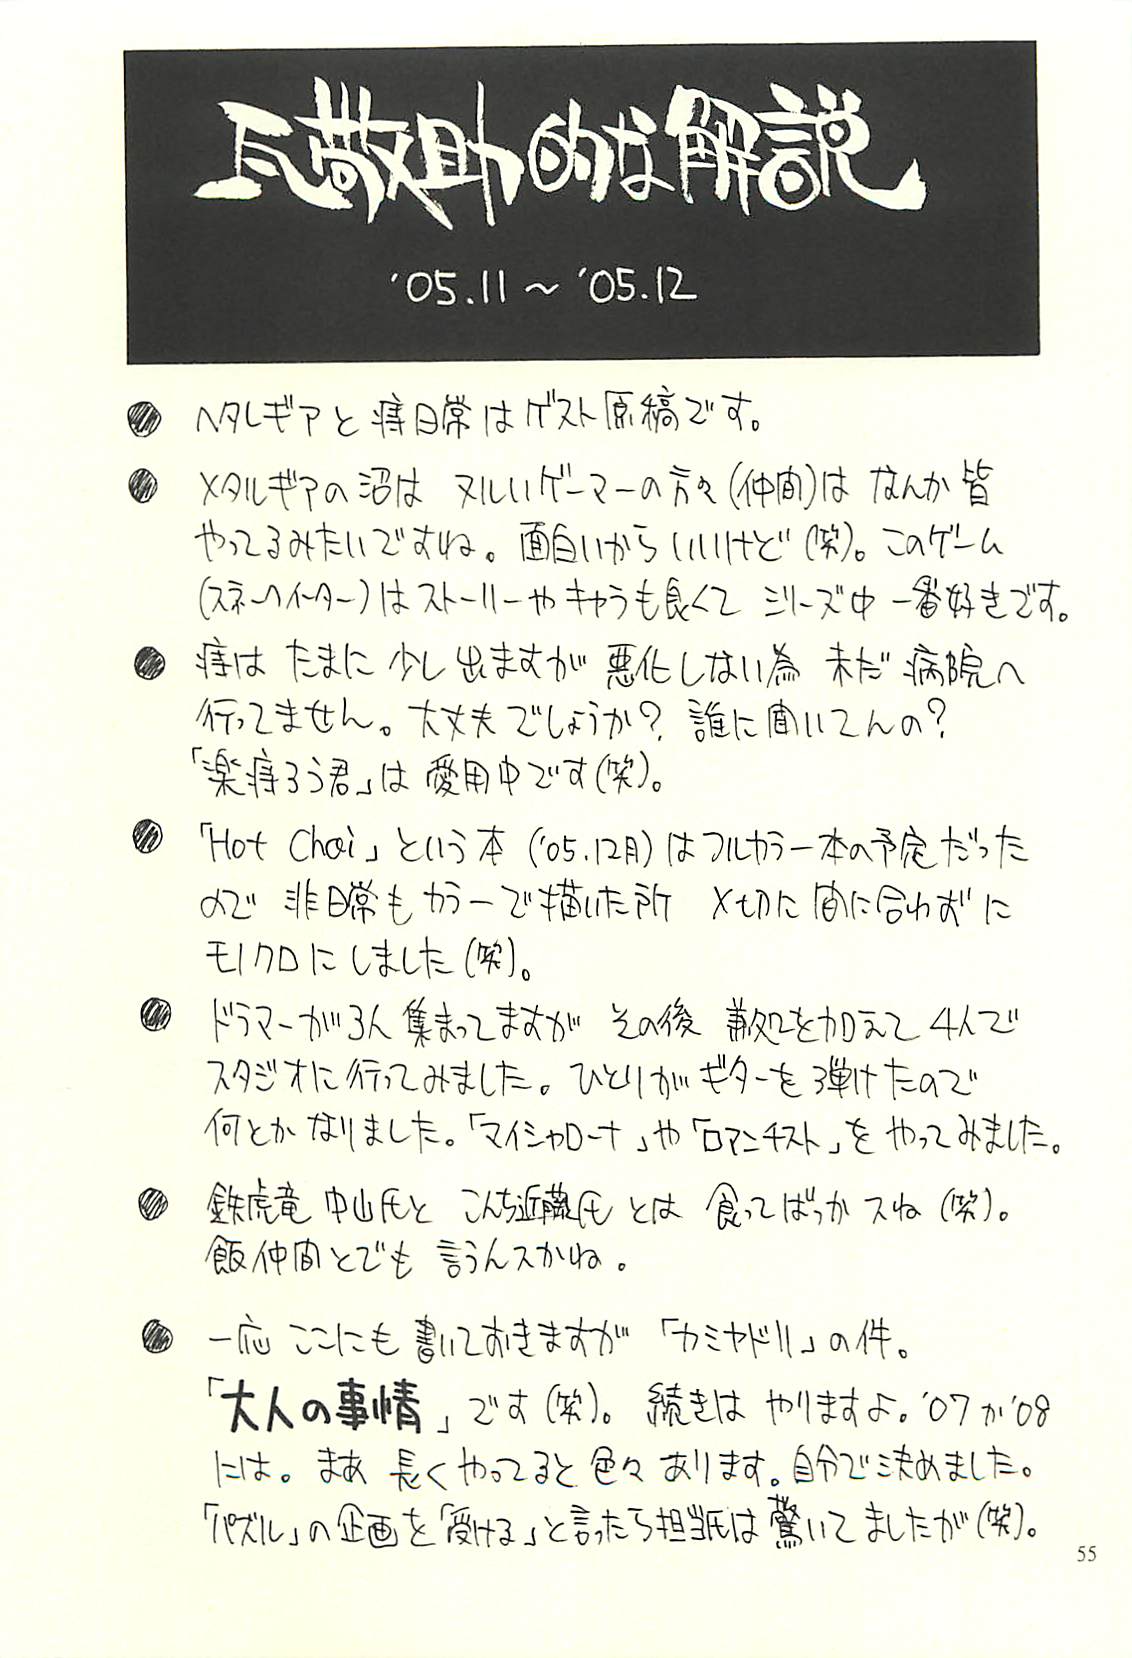 瓦敬助的な解説
'05.11～'05.12
● ヘタレギアと痔日常はゲスト原稿です。
● メタルギアの沼は ヌルいゲーマーの方々(仲間)は なんか皆
やってるみたいですね。面白いからいいけど(笑)。このゲーム
(スネークイーター)はストーリーやキャラも良くて シリーズ中一番好きです。
● 痔は たまに 少し出ますが 悪化しない為 未だ病院へ
行ってません。大丈夫でしょうか? 誰に聞いてんの?
「楽痔ろう君」は愛用中です(笑)。
● 「Hot Chai」という本('05.12月)はフルカラー本の予定だった
ので 非日常もカラーで描いた所 〆切に間に合わずに
モノクロにしました(笑)。
● ドラマーが3人集まってますが その後 兼処を加えて4人で
スタジオに行ってみました。ひとりがギターを弾けたので
何とかなりました。「マイシャローナ」や「ロマンチスト」をやってみました。
● 鉄虎竜 中山氏と こんち近藤氏とは 食ってばっかスね(笑)。
飯仲間とでも 言うんスかね。
● 一応 ここにも書いておきますが 「カミヤドリ」の件。
「大人の事情」です(笑)。続きは やりますよ。'07か'08
には。まあ 長くやってると 色々あります。自分で決めました。
「パズル」の企画を「受ける」と言ったら担当氏は驚いてましたが(笑)。
55